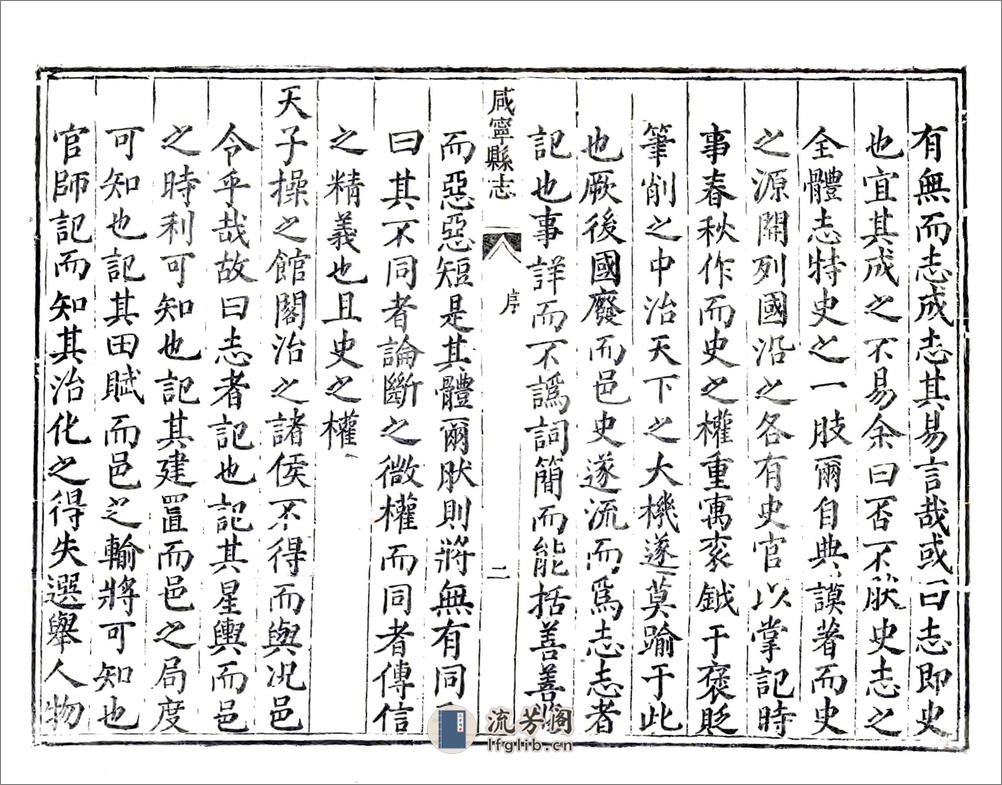 有無而志成志其易言哉或曰志即史
也宜其成之不易余曰否不肰史志之
全體志特史之一肢爾自典謨著而史
之源開列國沿之各有史官以掌記時
事春秋作而史之權重寓袞鉞于褒貶
筆削之中治天下之大機遂莫踰于此
也厥後國廢而邑史遂流而爲志志者
記也事詳而不譌詞簡而能括善善
而惡惡短是其體爾肰則將無有同
曰其不同者論斷之微權而同者傳信
之精義也且史之權
天子操之館閣治之諸侯不得而與况邑
令乎哉故曰志者記也記其星輿而邑
之時利可知也記其建置而邑之局度
可知也記其田賦而邑之輸將可知也
官師記而知其治化之得失選舉人物
咸寧縣志
序
二
流芳阁
lfglib.cn